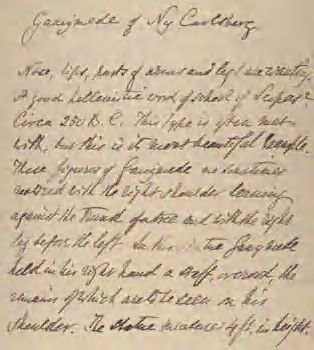 Ganymede of Ny Carlsberg
Nose, lips, parts of arms and legs are wanting.
A good hellenistic work of school of Scopas
Circa 250 B.C. This type is often met
with, but this is its most beautiful example.
These figures of Ganymede are sometimes
restored with the right shoulder leaning
against the trunk of a tree and with the right
leg before the left. In this statue Ganymede
held in his right hand a staff, or rod, the
remains of which are to be seen on his
shoulder. The statue measures 4 ft. in height.